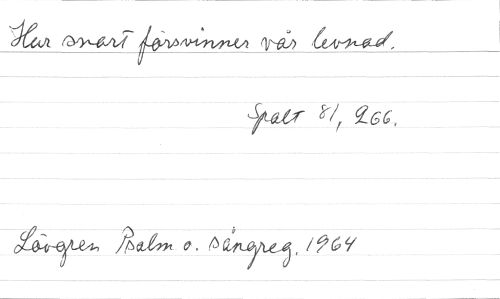 Hur snart försvinner vår levnad.
Spalt 81, 266.
Lövgren Psalm o. sångreg. 1964